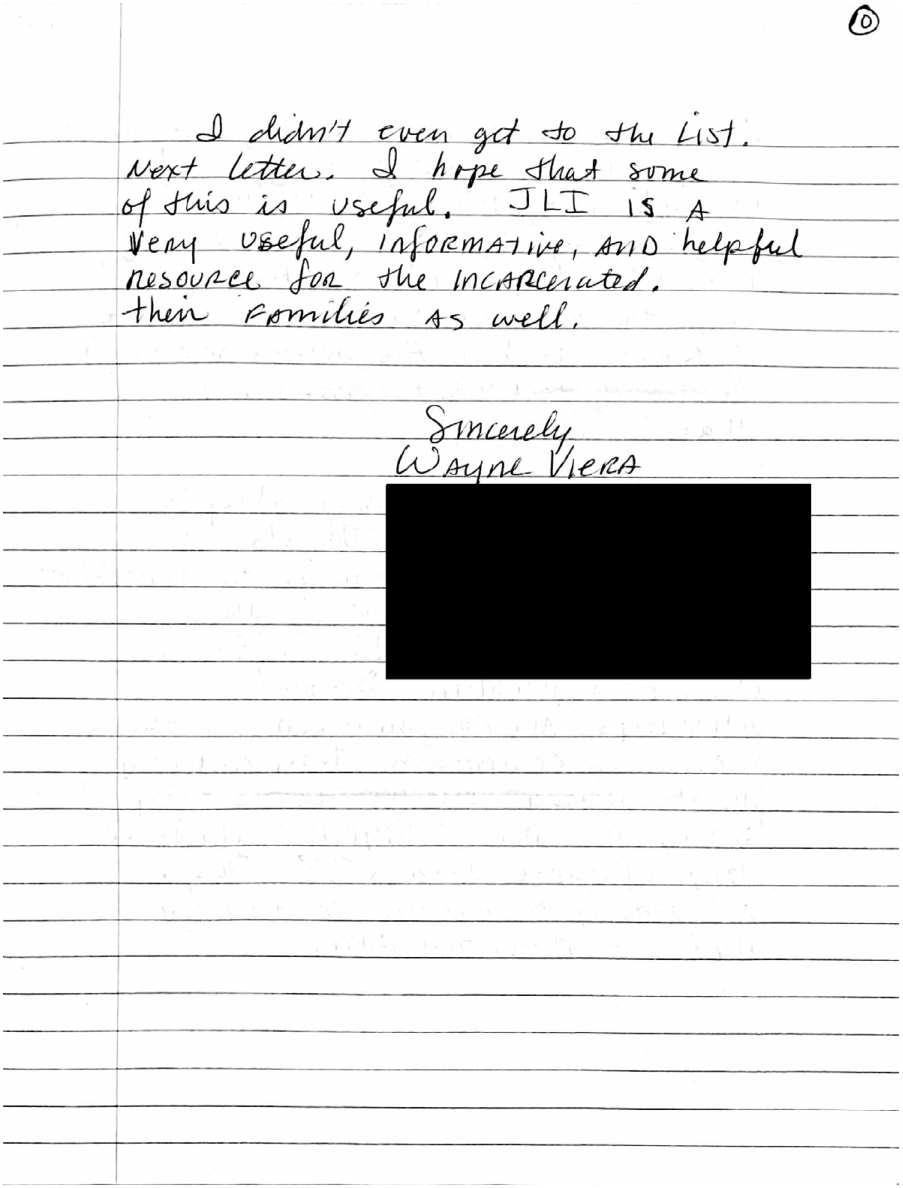 10
I didn't even get to the List.
Next letter. I hope that some
of this is useful. JLI is A
Very useful, informative, AND helpful
resource for the incarcerated.
their Families As well.
Sincerely
Wayne Viera